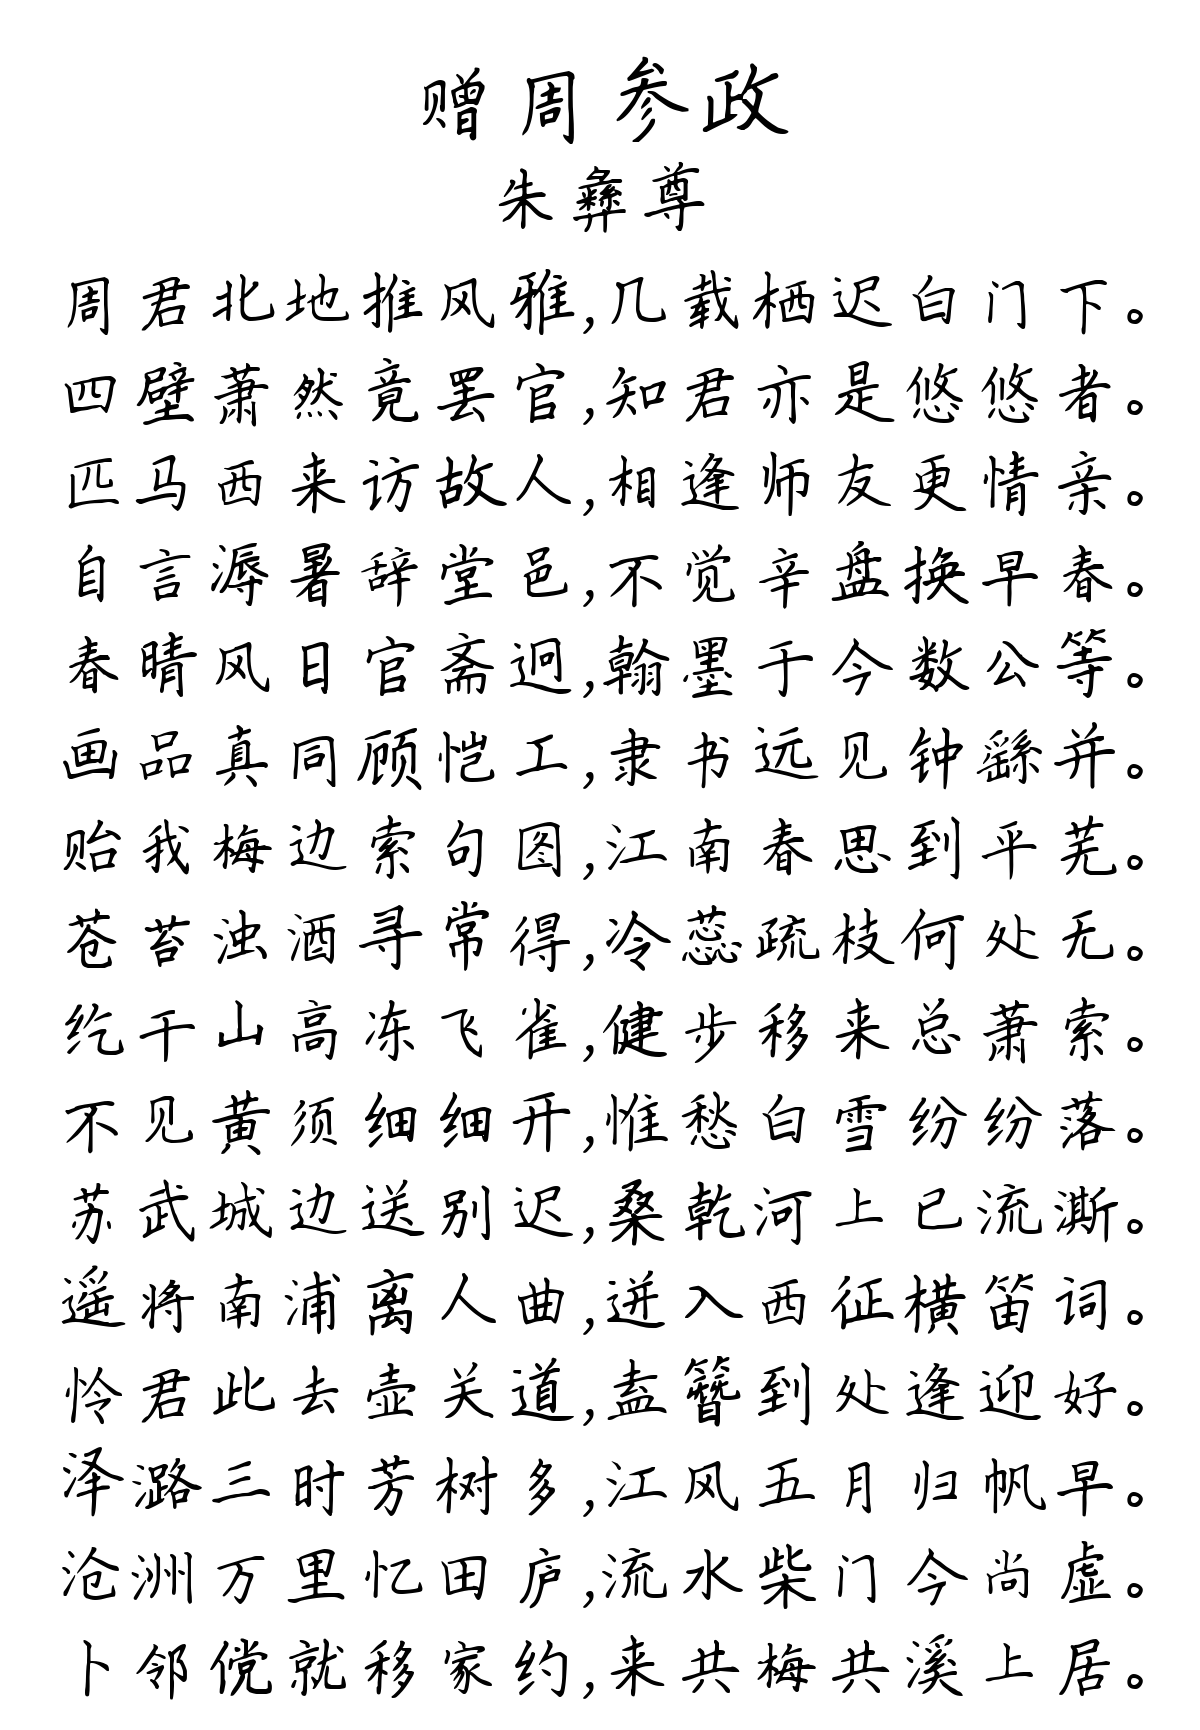 赠周参政
朱彝尊
周君北地推风雅,几载栖迟白门下。
四壁萧然竟罢官,知君亦是悠悠者。
匹马西来访故人,相逢师友更情亲。
自言溽暑辞堂邑,不觉辛盘换早春。
春晴风日官斋迥,翰墨于今数公等。
画品真同顾恺工,隶书远见钟繇并。
贻我梅边索句图,江南春思到平芜。
苍苔浊酒寻常得,冷蕊疏枝何处无。
纥干山高冻飞雀,健步移来总萧索。
不见黄须细细开,惟愁白雪纷纷落。
苏武城边送别迟,桑乾河上已流澌。
遥将南浦离人曲,迸入西征横笛词。
怜君此去壶关道,盍簪到处逢迎好。
泽潞三时芳树多,江风五月归帆早。
沧洲万里忆田庐,流水柴门今尚虚。
卜邻傥就移家约,来共梅共溪上居。